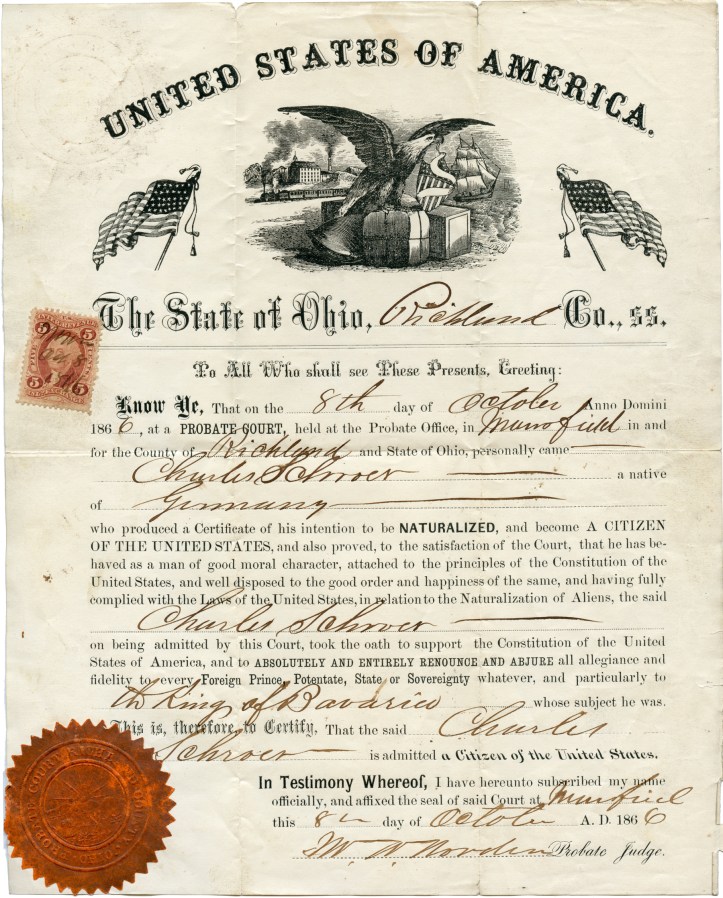 UNITED STATES OF AMERICA.
The State of Ohio, Richland Co., ss.
To All Who shall see These Presents, Greeting:
Know Ye, That on the 8th day of October Anno Domini
1866, at a PROBATE COURT, held at the Probate Office, in Mansfield in and
for the County of Richland and State of Ohio, personally came
Charles Schroer a native
of Germany
who produced a Certificate of his intention to be NATURALIZED, and become A CITIZEN
OF THE UNITED STATES, and also proved, to the satisfaction of the Court, that he has be-
haved as a man of good moral character, attached to the principles of the Constitution of the
United States, and well disposed to the good order and happiness of the same, and having fully
complied with the Laws of the United States, in relation to the Naturalization of Aliens, the said
Charles Schroer
on being admitted by this Court, took the oath to support the Constitution of the United
States of America, and to ABSOLUTELY AND ENTIRELY RENOUNCE AND ABJURE all allegiance and
fidelity to every Foreign Prince, Potentate, State or Sovereignty whatever, and particularly to
th King of Bavaria whose subject he was.
This is, therefore, to Certify, That the said Charles
Schroer is admitted a Citizen of the United States.
In Testimony Whereof, I have hereunto subscribed my name
officially, and affixed the seal of said Court at Mansfield
this 8th day of October A. D. 1866
Probate Judge.
5
5
5
5
COURT